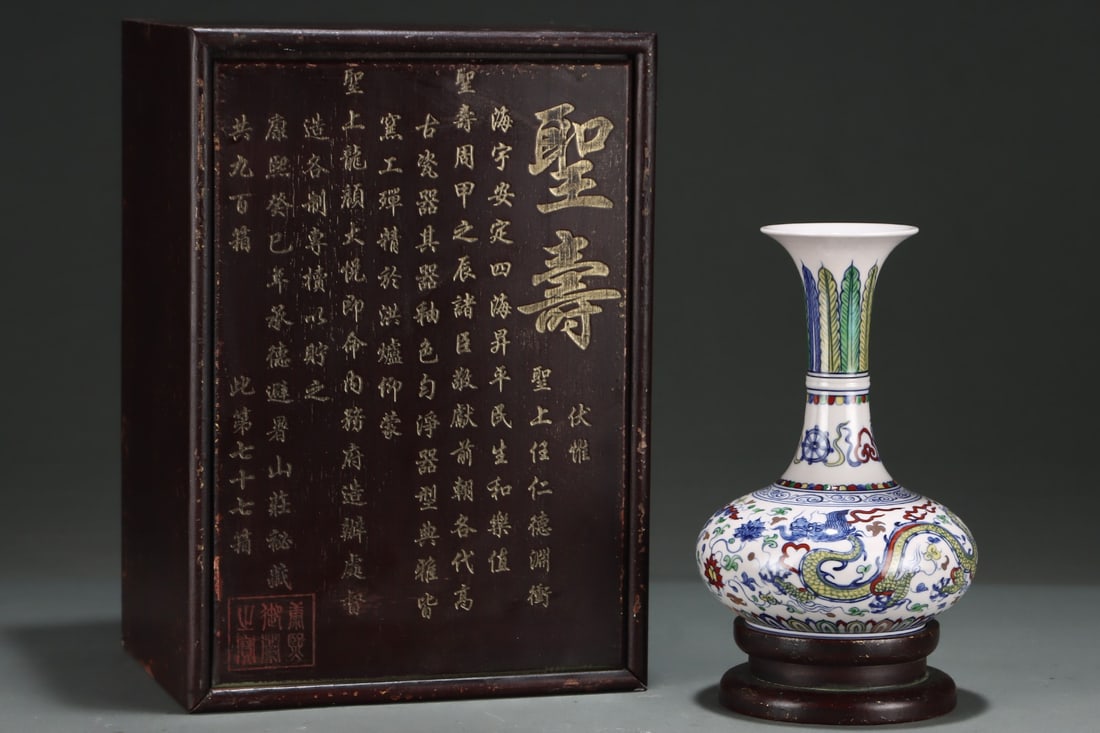 聖壽
伏惟
聖上任仁德淵衝
海宇安定四海昇平民生和樂值
聖壽周甲之辰諸臣敬獻前朝各代高
古瓷器其器釉色勻淨器型典雅皆
窯工殫精於洪爐仰蒙
聖上龍顏大悦即命內務府造辦處督
造各制專櫝以貯之
康熙癸巳年承德避暑山莊秘藏
共九百箱
此第七十七箱
康熙
御覽
之寶